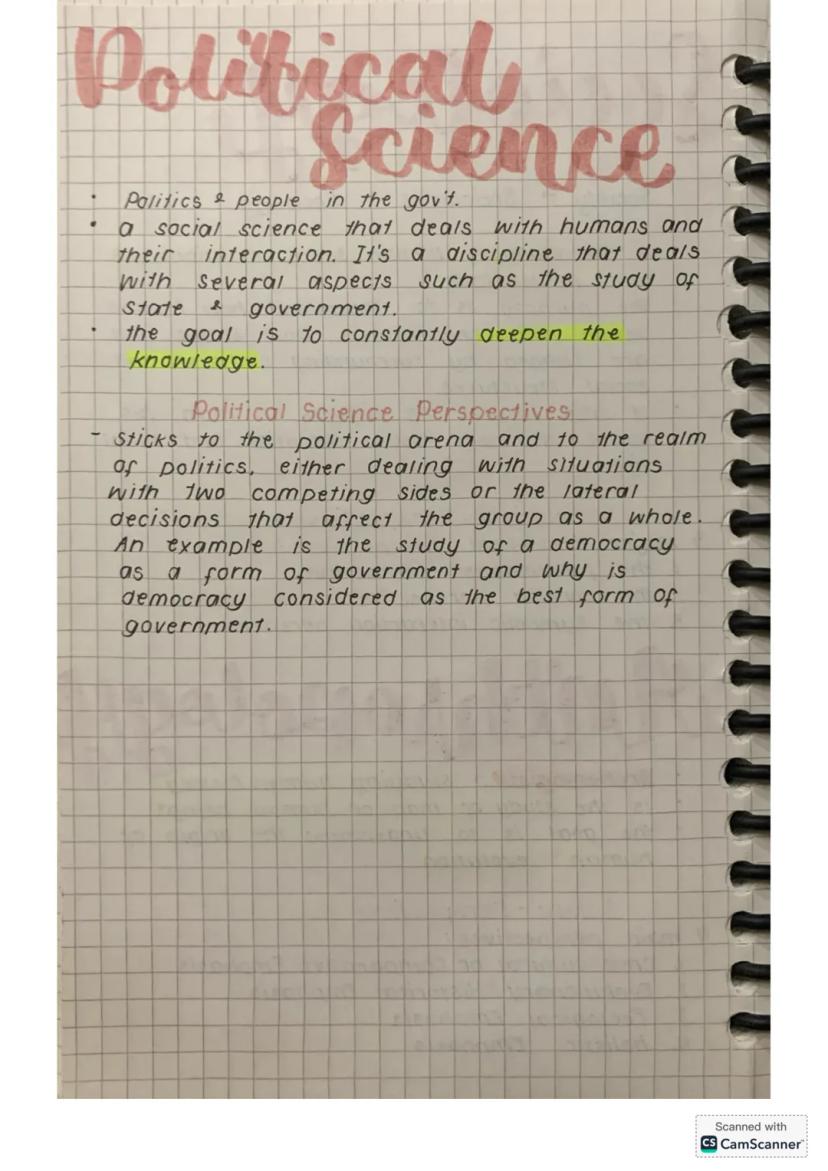 Political
Science
• Politics & people in the gov't.
• a social science that deals with humans and
their interaction. It's a discipline that deals
with several aspects such as the study of
state & government.
• the goal is to constantly deepen the
knowledge.
Political Science Perspectives
- sticks to the political arena and to the realm
of politics, either dealing with situations
with two competing sides or the lateral
decisions that affect the group as a whole.
An example is the study of a democracy
as a form of government and why is
democracy considered as the best form of
government.
Scanned with
CS CamScanner